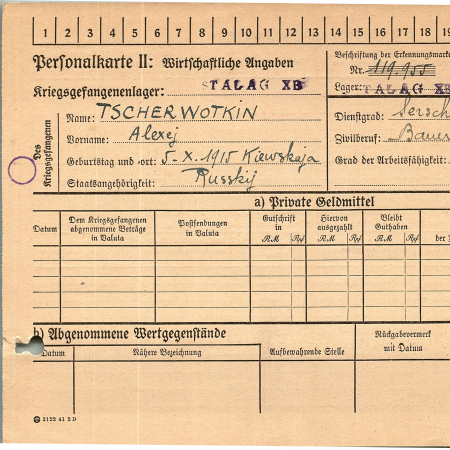 1 2 3 4 5 6 7 8 9 10 11 12 13 14 15 16 17 18 19
Personalkarte II: Wirtschaftliche Angaben
Beschriftung der Erkennungsmarke
Nr. 119.955
Kriegsgefangenenlager: STALAG XB
Lager: STALAG XB
Des Kriegsgefangenen
Name: TSCHERWOTKIN
Vorname: Alexej
Geburtstag und -ort: 5-X.1915 Kiewskaja
Staatsangehörigkeit: Russkij
Dienstgrad: Sersch
Zivilberuf: Bauer
Grad der Arbeitsfähigkeit:
a) Private Geldmittel
Datum
Dem Kriegsgefangenen abgenommene Beträge in Valuta
Postsendungen in Valuta
Gutschrift in
RM Rpf
Hiervon ausgezahlt
RM Rpf
Bleibt Guthaben
RM Rpf
der
b) Abgenommene Wertgegenstände
Datum
Nähere Bezeichnung
Aufbewahrende Stelle
Rückgabevermerk mit Datum
3122 41 2 D